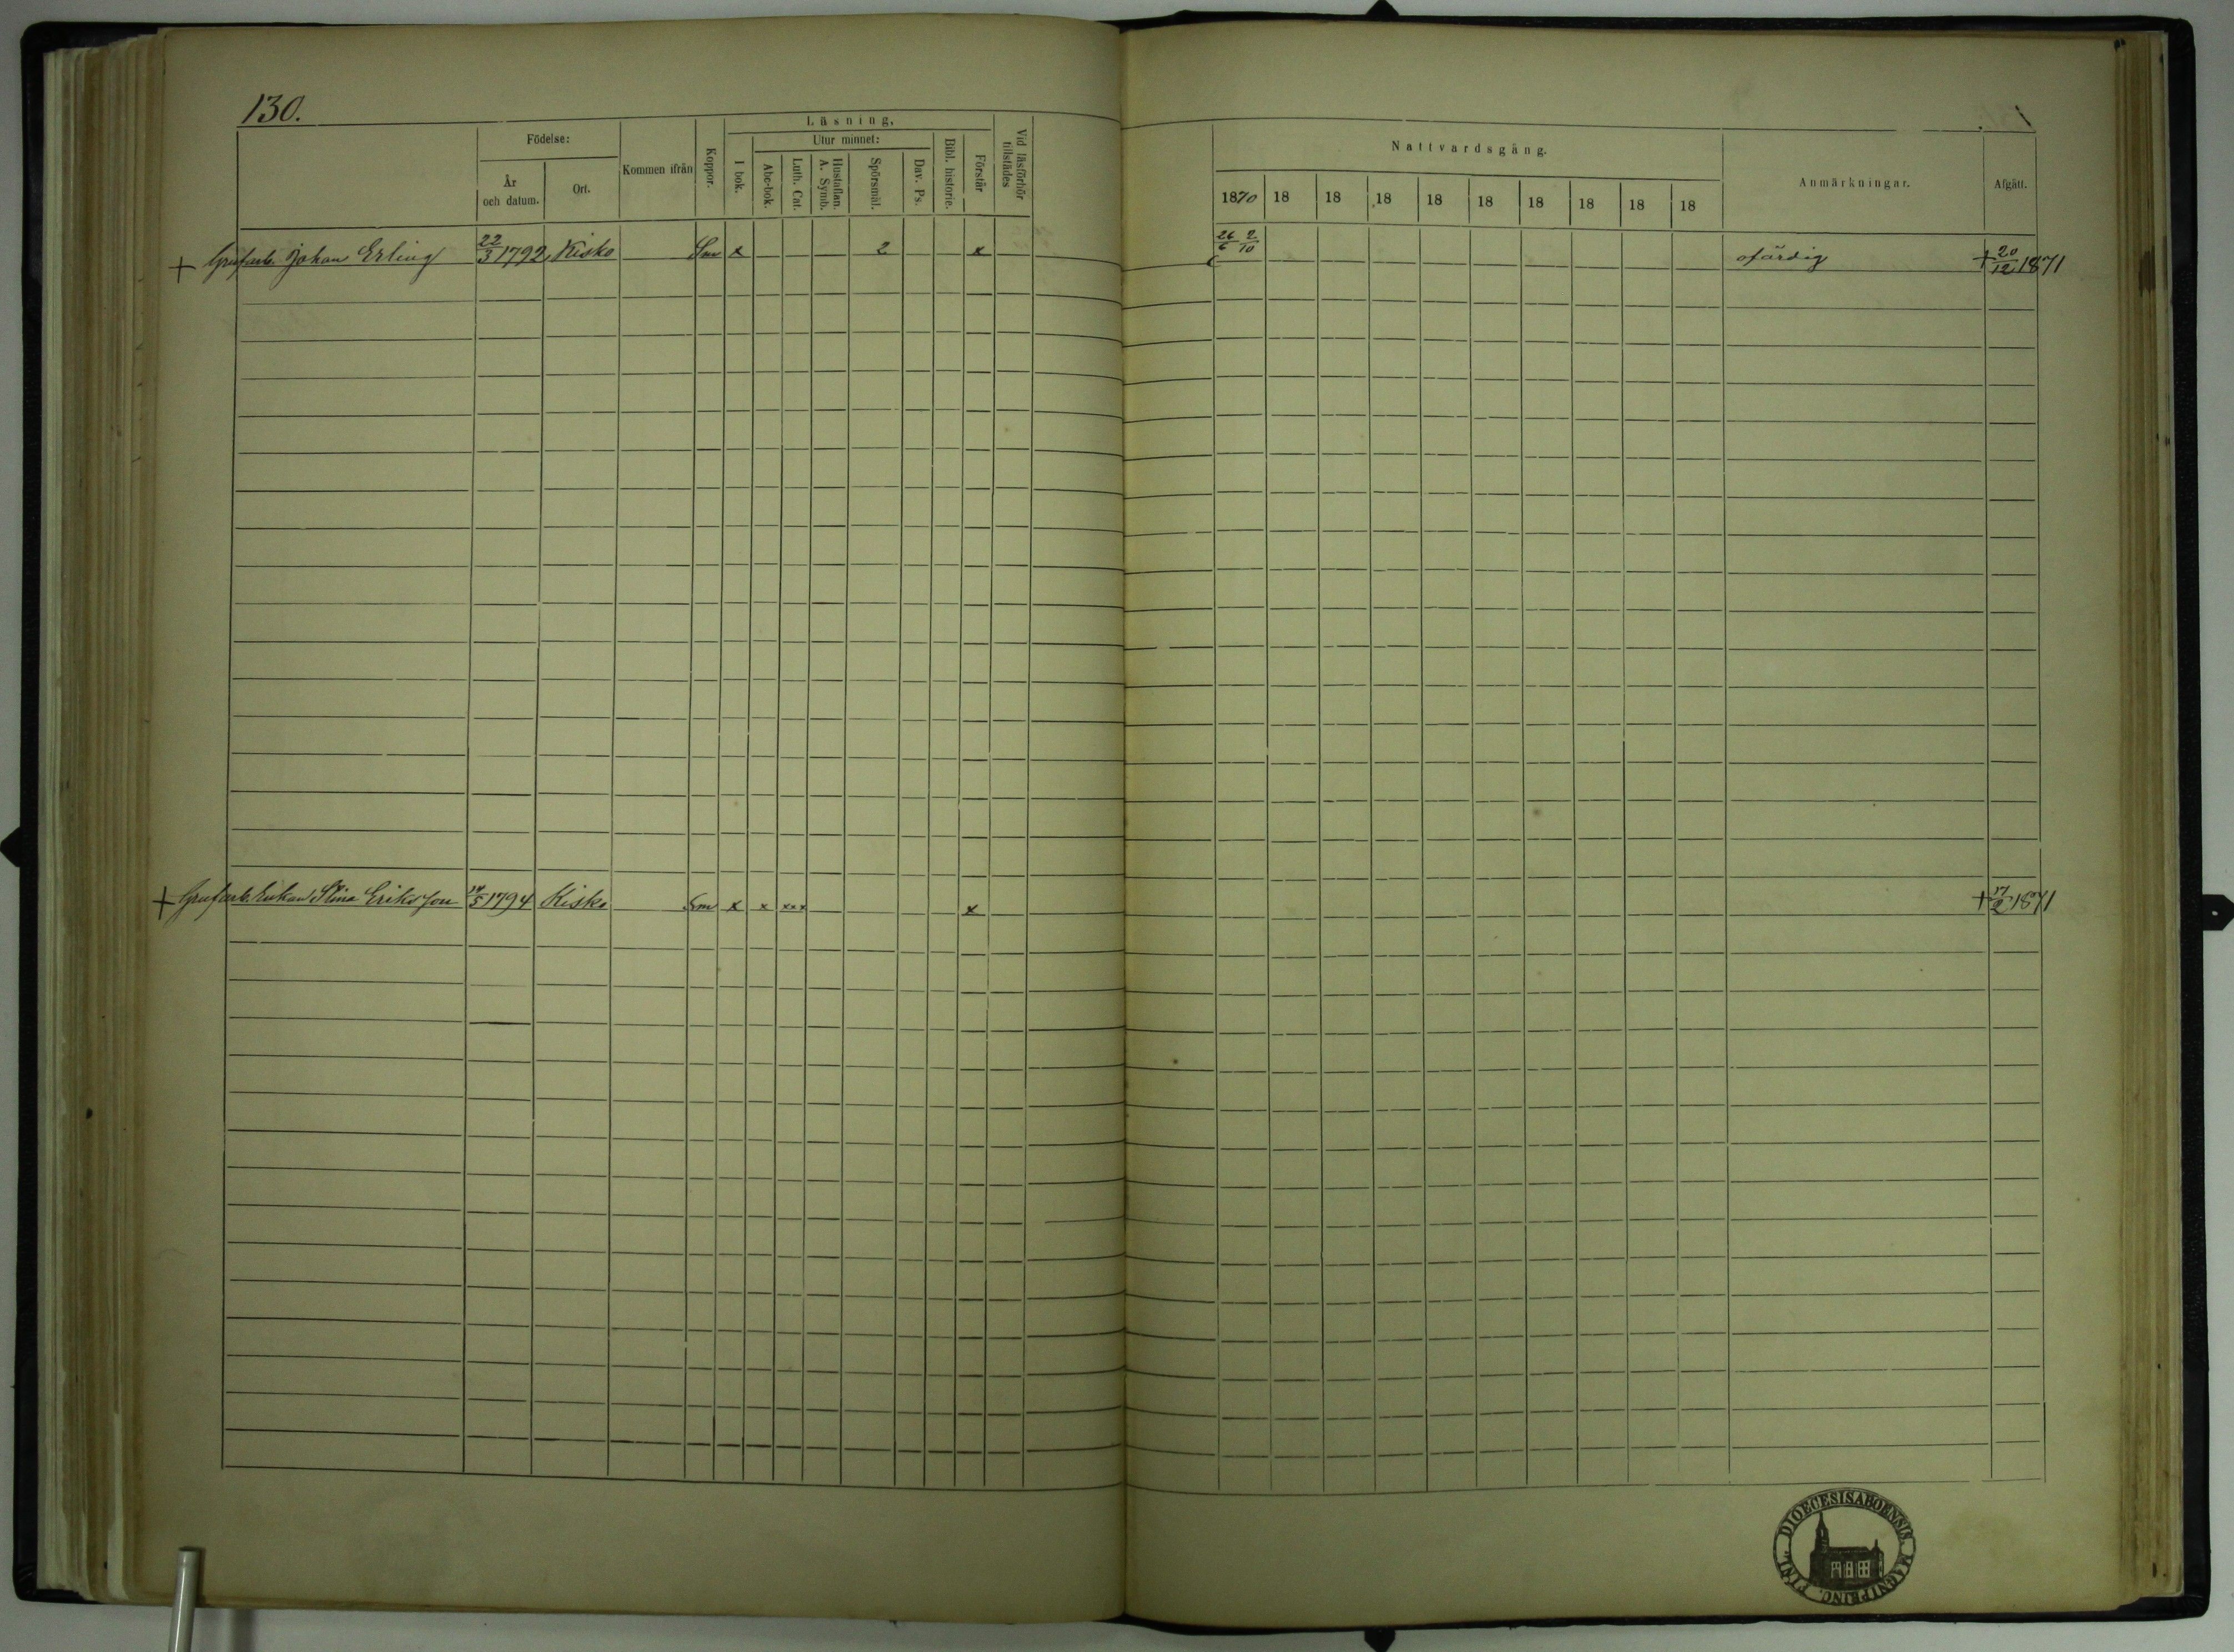 130.
Födelse:
År och datum.
Ort.
Kommen ifrån
Koppor.
Läsning.
I bok.
Utur minnet:
Abc-bok.
Luth. Cat.
Hustaflan. A. Symb.
Spörsmål.
Dav. Ps.
Bibl. historie.
Förstår
Vid läsförhör tillstädes
Nattvardsgång.
1870 18 18 18 18 18 18 18 18 18
Anmärkningar.
Afgått.
+ Grufarb. Johan Erling 22/3 1792 Kisko Sm x 2 x 26/6 2/10 ofärdig + 20/12 1871
+ Grufarb. Enkan Stina Eriksson 14/5 1794 Kisko Sm x x xxx x + 1871
DIOECESIS ABOENSIS. MAGNI PRINC. FINL.